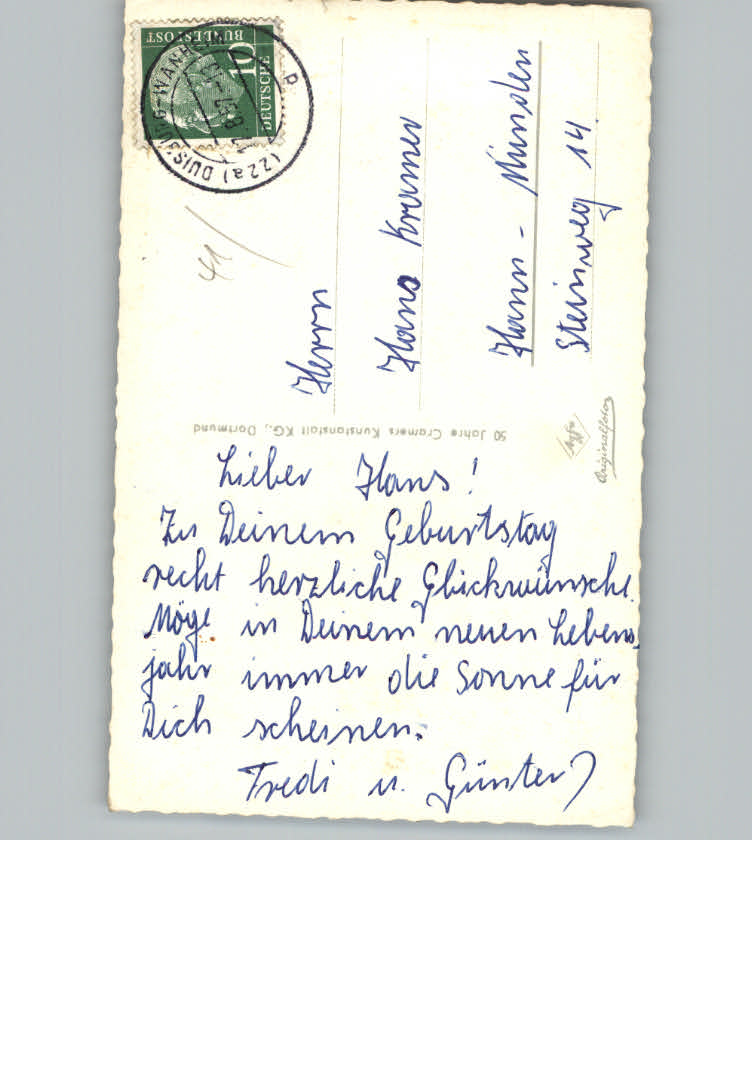 DEUTSCHE
BUNDESPOST
10
(22a) DUISBURG-WANHEIM
41
Herrn
Hans Kramer
Hann-Münden
Steinweg 14.
50 Jahre Cramers Kunstanstalt KG., Dortmund
Agfa
Originalfoto
Lieber Hans!
Zu Deinem Geburtstag
recht herzliche Glückwünsche.
Möge in Deinem neuen Lebens-
jahr immer die Sonne für
Dich scheinen.
Fredi u. Günter